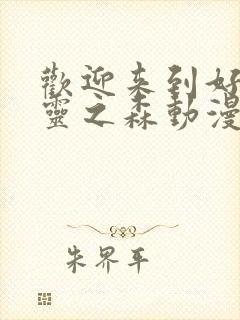 歡迎来到好
靈之森動漫
朱界平